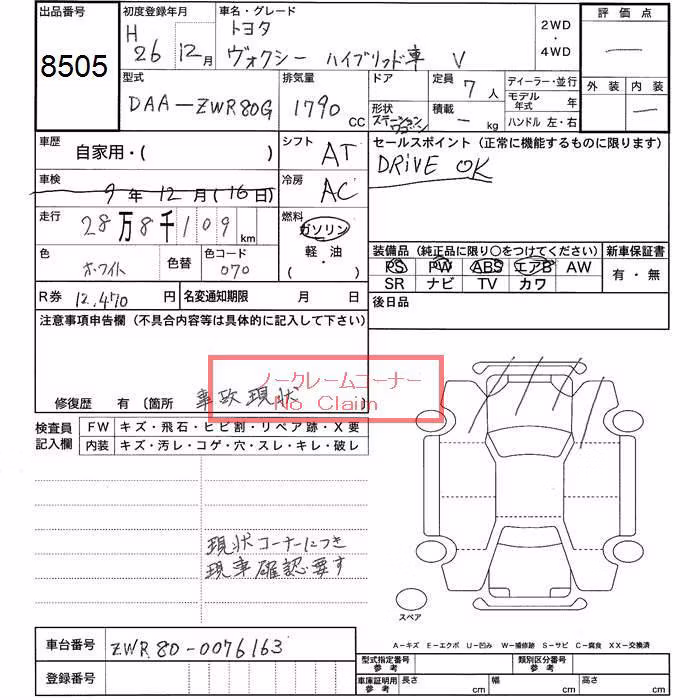 出品番号
8505
初度登録年月
H 26 12月
車名・グレード
トヨタ
ヴォクシー ハイブリッド車 V
2WD
・
4WD
評価点
外装 内装
型式
DAA-ZWR80G
排気量
1790 CC
ドア
定員
7人
形状
ステーションワゴン
積載
- kg
ディーラー・並行
モデル年式 年
ハンドル 左・右
車歴
自家用・( )
シフト
AT
車検
9年12月(16日)
冷房
AC
走行
28万8千109 km
燃料
ガソリン
軽・油
( ・ )
色
ホワイト
色替
色コード
070
R券 12,470円
名変通知期限 月 日
セールスポイント(正常に機能するものに限ります)
DRiVE OK
装備品(純正品に限り○をつけてください)
新車保証書
PS PW ABS エアB AW
SR ナビ TV カワ
有・無
後日品
注意事項申告欄(不具合内容等は具体的に記入して下さい)
ノークレームコーナー
No Claim
修復歴 有〔箇所 事故現状 〕
検査員記入欄
FW キズ・飛石・ヒビ割・リペア跡・X要
内装 キズ・汚レ・コゲ・穴・スレ・キレ・破レ
現状コーナーにつき
現車確認要す
スペア
A-キズ E-エクボ U-凹み W-補修跡 S-サビ C-腐食 XX-交換済
車台番号
ZWR80-0076163
登録番号
型式指定番号 参考
類別区分番号 参考
車庫証明用 参考
長さ cm 幅 cm 高さ cm